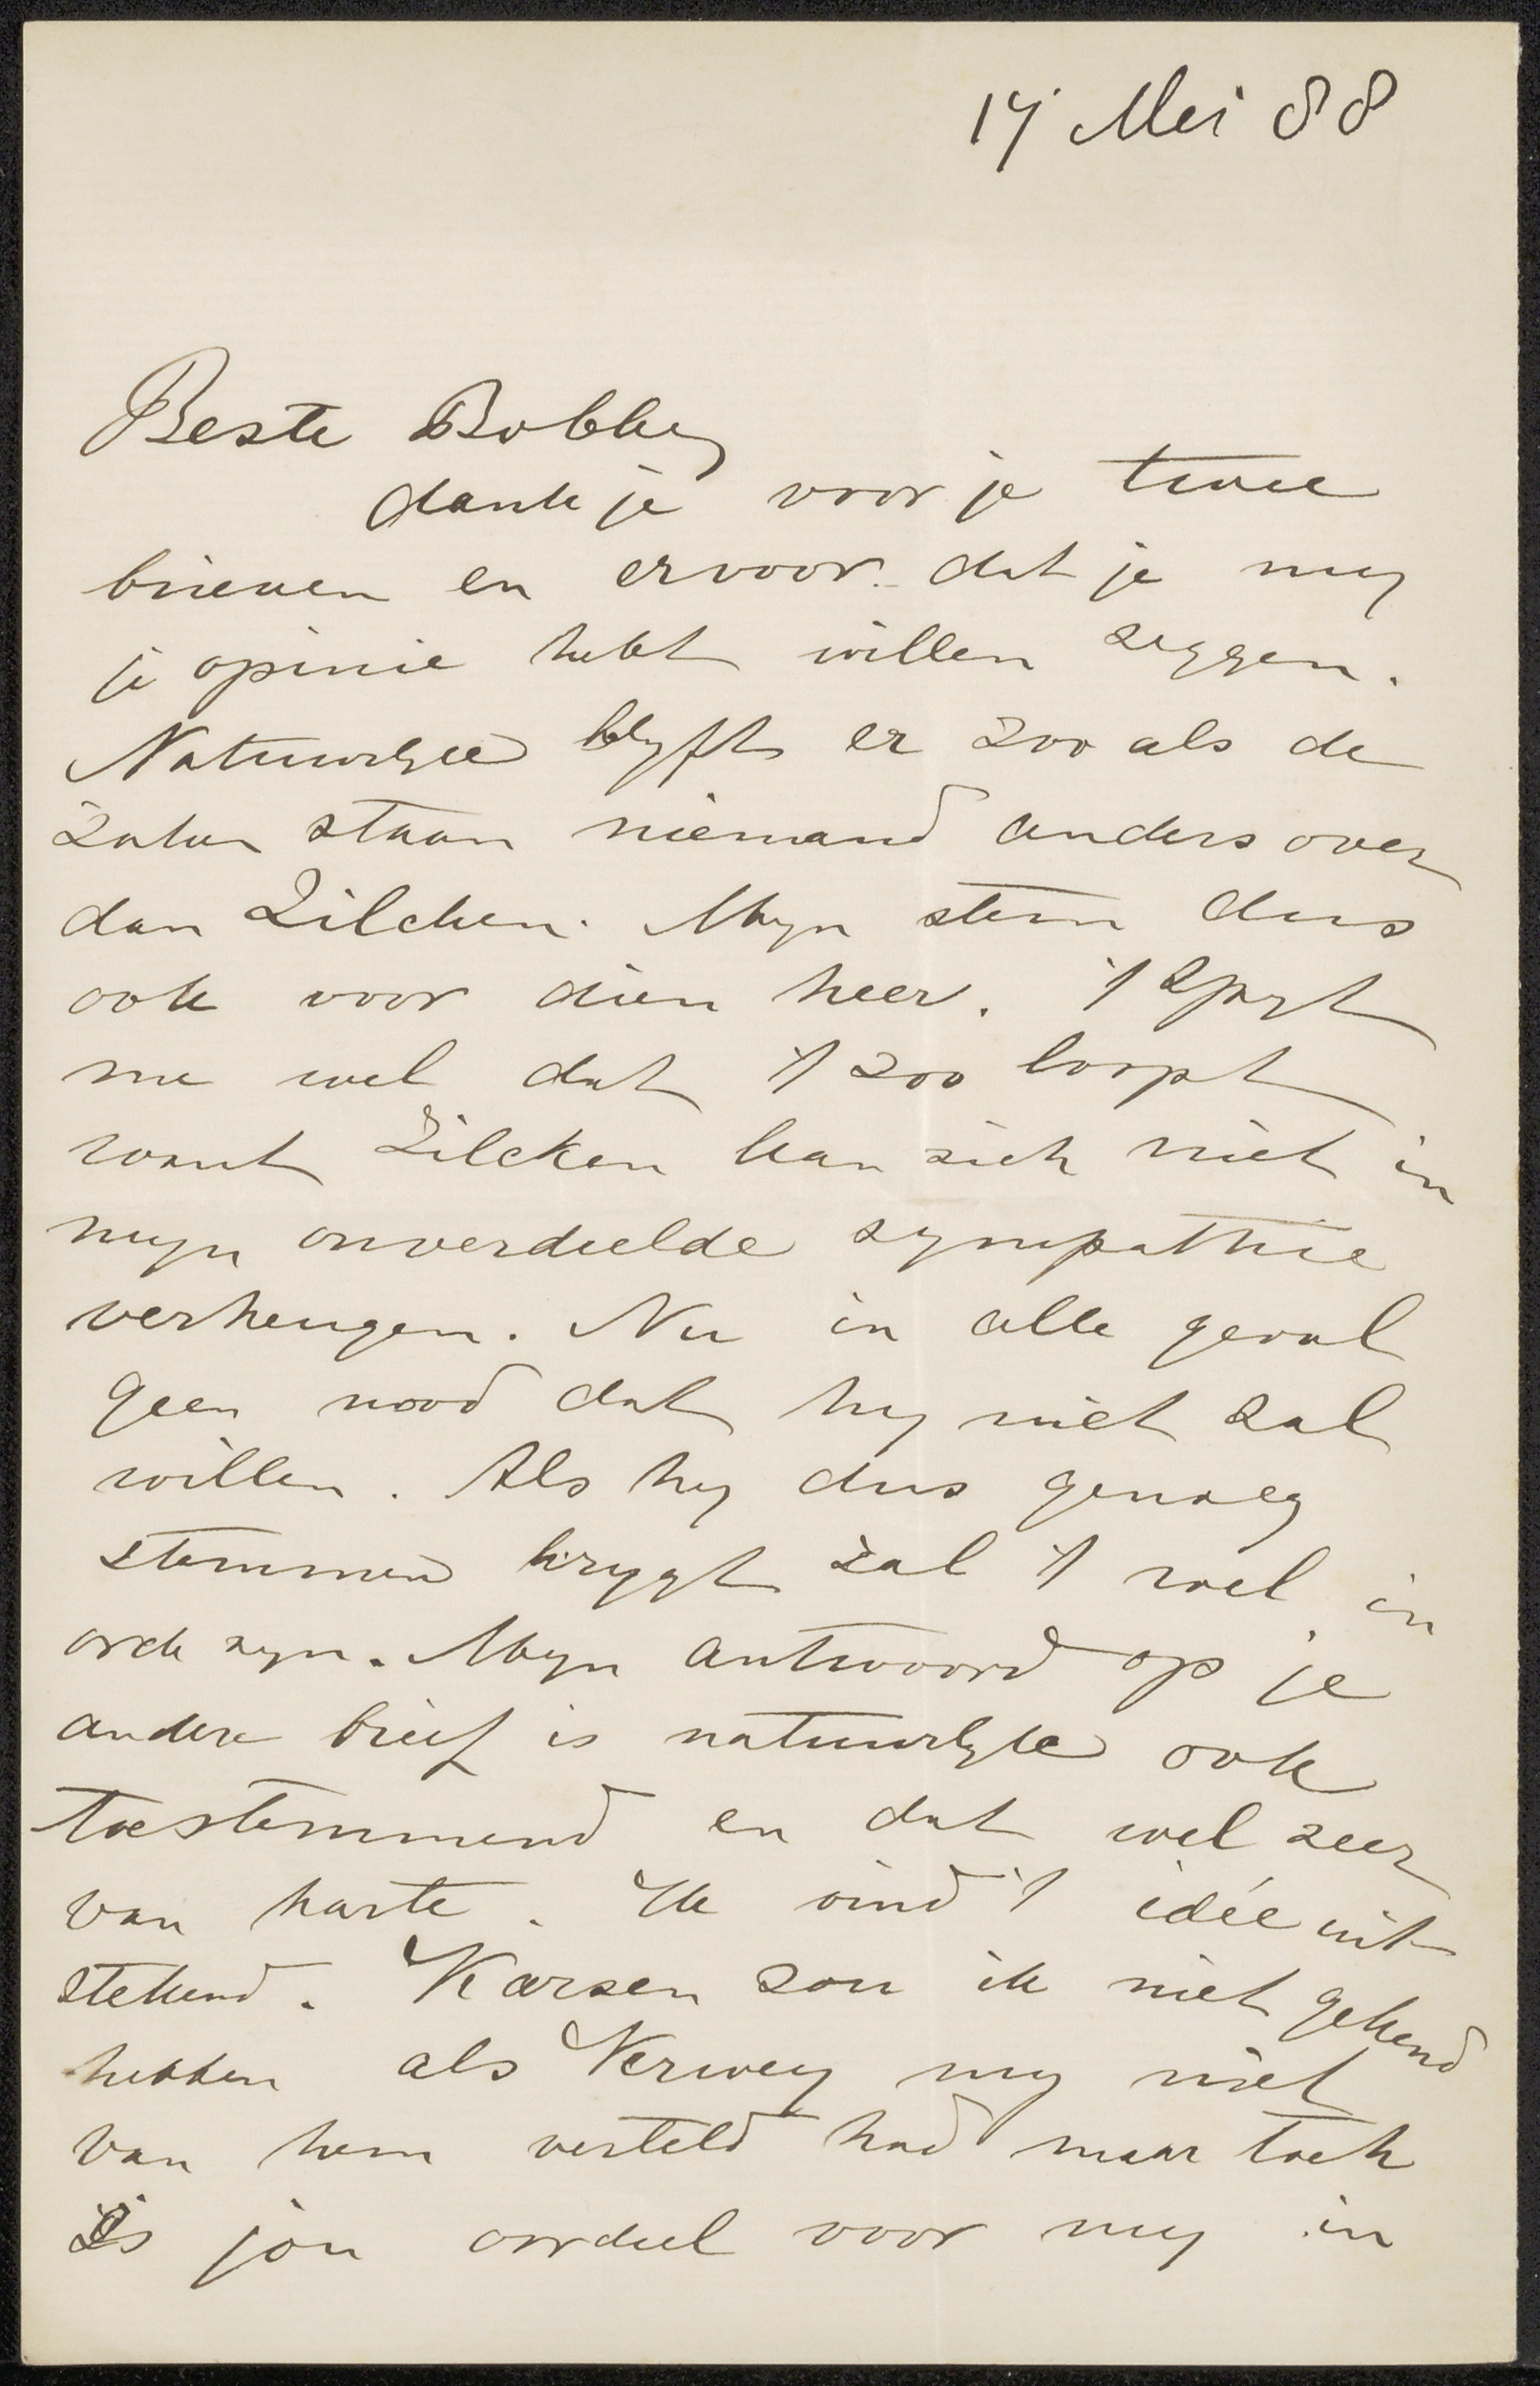 17 Mei 88
Beste Bobbey
dank je voor je twee
brieven en ervoor dat je my
je opinie hebt willen zeggen.
Natuurlyk blyft er zoo als de
zaken staan niemand anders over
dan Zilcken. Myn stem dus
ook voor dien heer. 't Spyt
me wel dat 't zoo loopt
want Zilcken kan zich niet in
myn onverdeelde sympathie
verheugen. Nu in alle geval
geen nood dat hy niet zal
willen. Als hy dus genoeg
stemmen krygt zal 't wel in
orde zyn. Myn antwoord op je
andere brief is natuurlyk ook
toestemmend en dat wel zeer
van harte. Ik vind 't idée uit
stekend. Karsen zou ik niet gekend
hebben als Verwey my niet
van hem verteld had maar toch
is jou oordeel voor my in